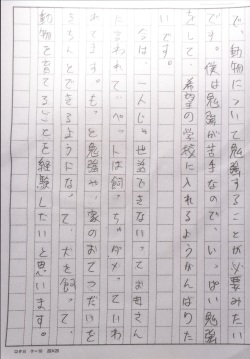 で、動物について勉強することが必要みたい
です。僕は勉強が苦手なので、いっぱい勉強
をして、希望の学校に入れるようがんばりた
いです。
なは、一人じゃ世話できないってお母さん
に言われて、ペットは飼っちゃダメっていわ
れてます。もっと勉強や、家のおてつだいを
きちんとできるようになって、犬を飼って、
動物を育てることを経験したいと思います。